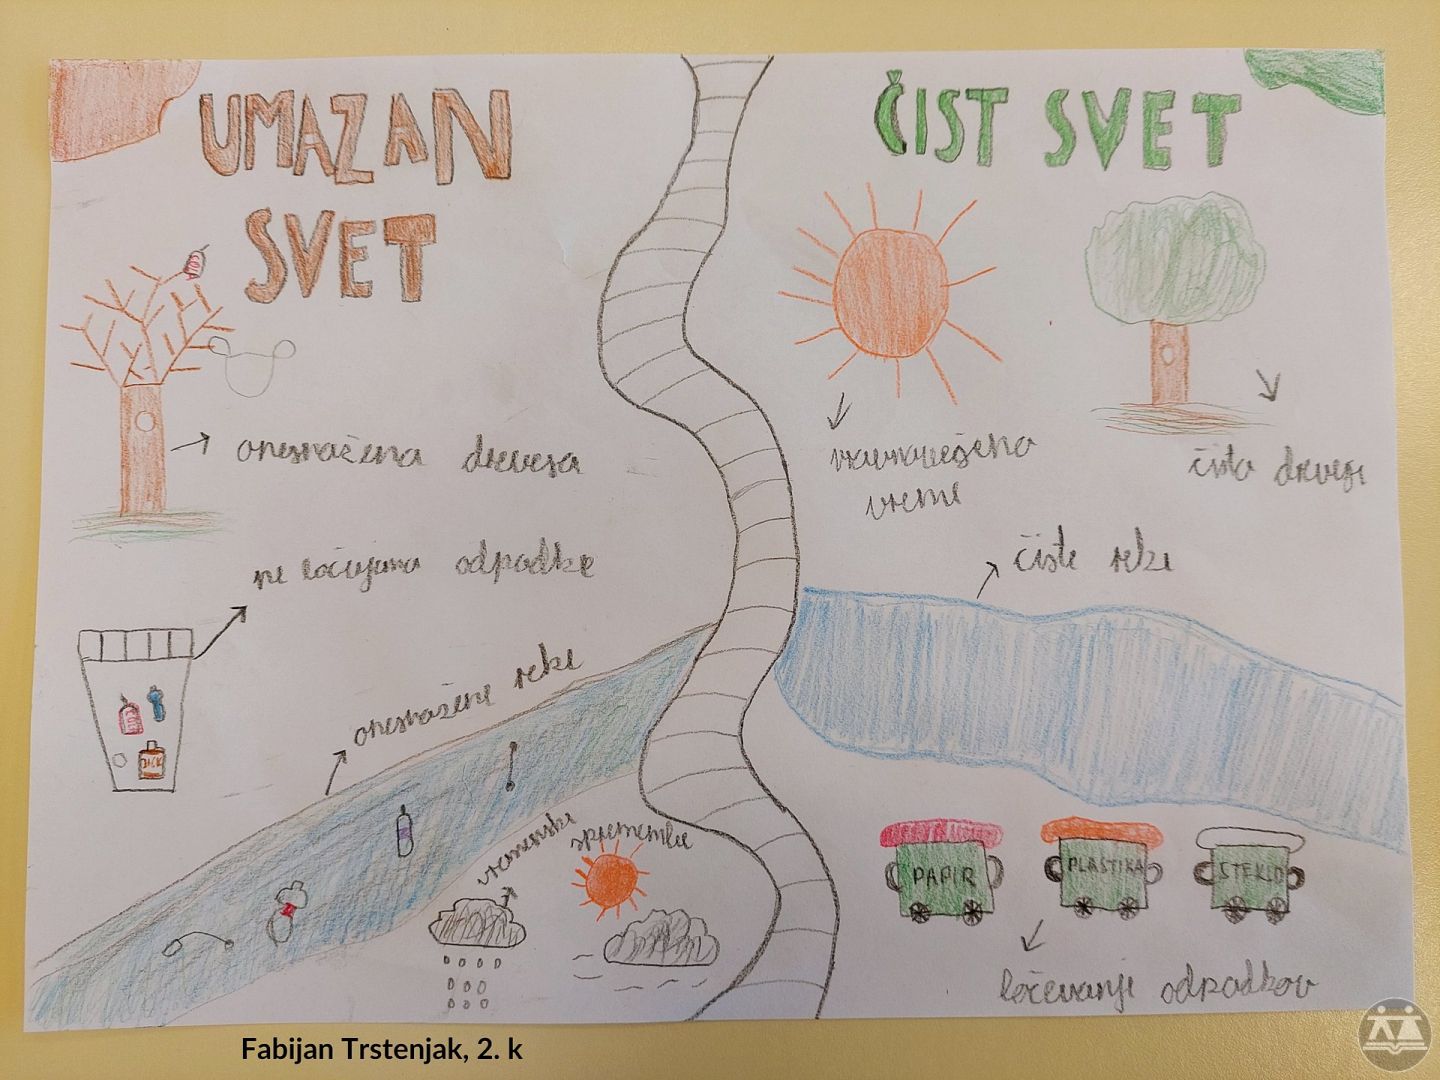 UMAZAN
SVET
onesnažena drevesa
ne ločujemo odpadke
onesnažene reke
vremenske spremembe
ČIST SVET
uravnovešeno
vreme
čista drevesa
čiste reke
PAPIR
PLASTIKA
STEKLO
ločevanje odpadkov
Fabijan Trstenjak, 2. k